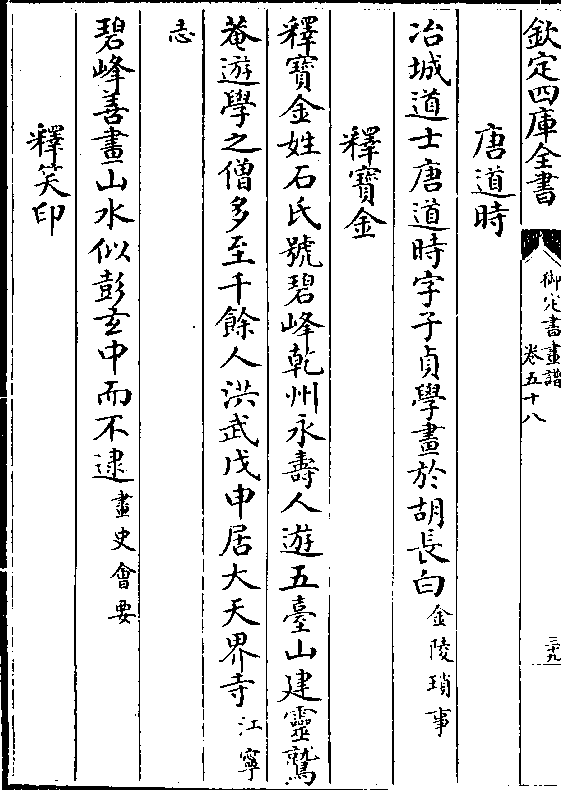 欽定四庫全書
御定書畫譜
卷五十八
三十九
唐道時
冶城道士唐道時字子貞學畫於胡長白金陵瑣事
釋寶金
釋寶金姓石氏號碧峰乾州永壽人遊五臺山建靈鷲
菴遊學之僧多至千餘人洪武戊申居大天界寺江寧
志
碧峰善畫山水似彭玄中而不逮畫史會要
釋笑印